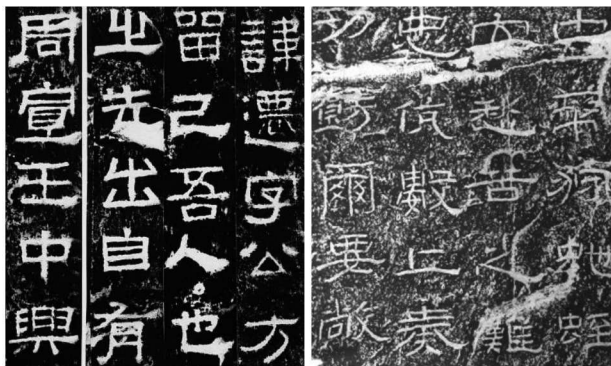 諱遷字公方
留己吾人也
之先出自有
周宣王中興
虫狩蛇蛭
安愁苦之難
忠伉數上奏
功飭爾要敞